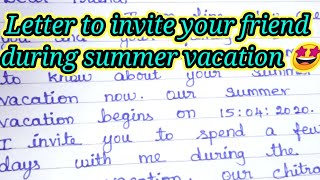 Letter to invite your friend
during summer vacation
to know about your summer
vacation now. our summer
vacation begins on 15:04:2020.
I invite you to spend a few
days with me during the
our chitra